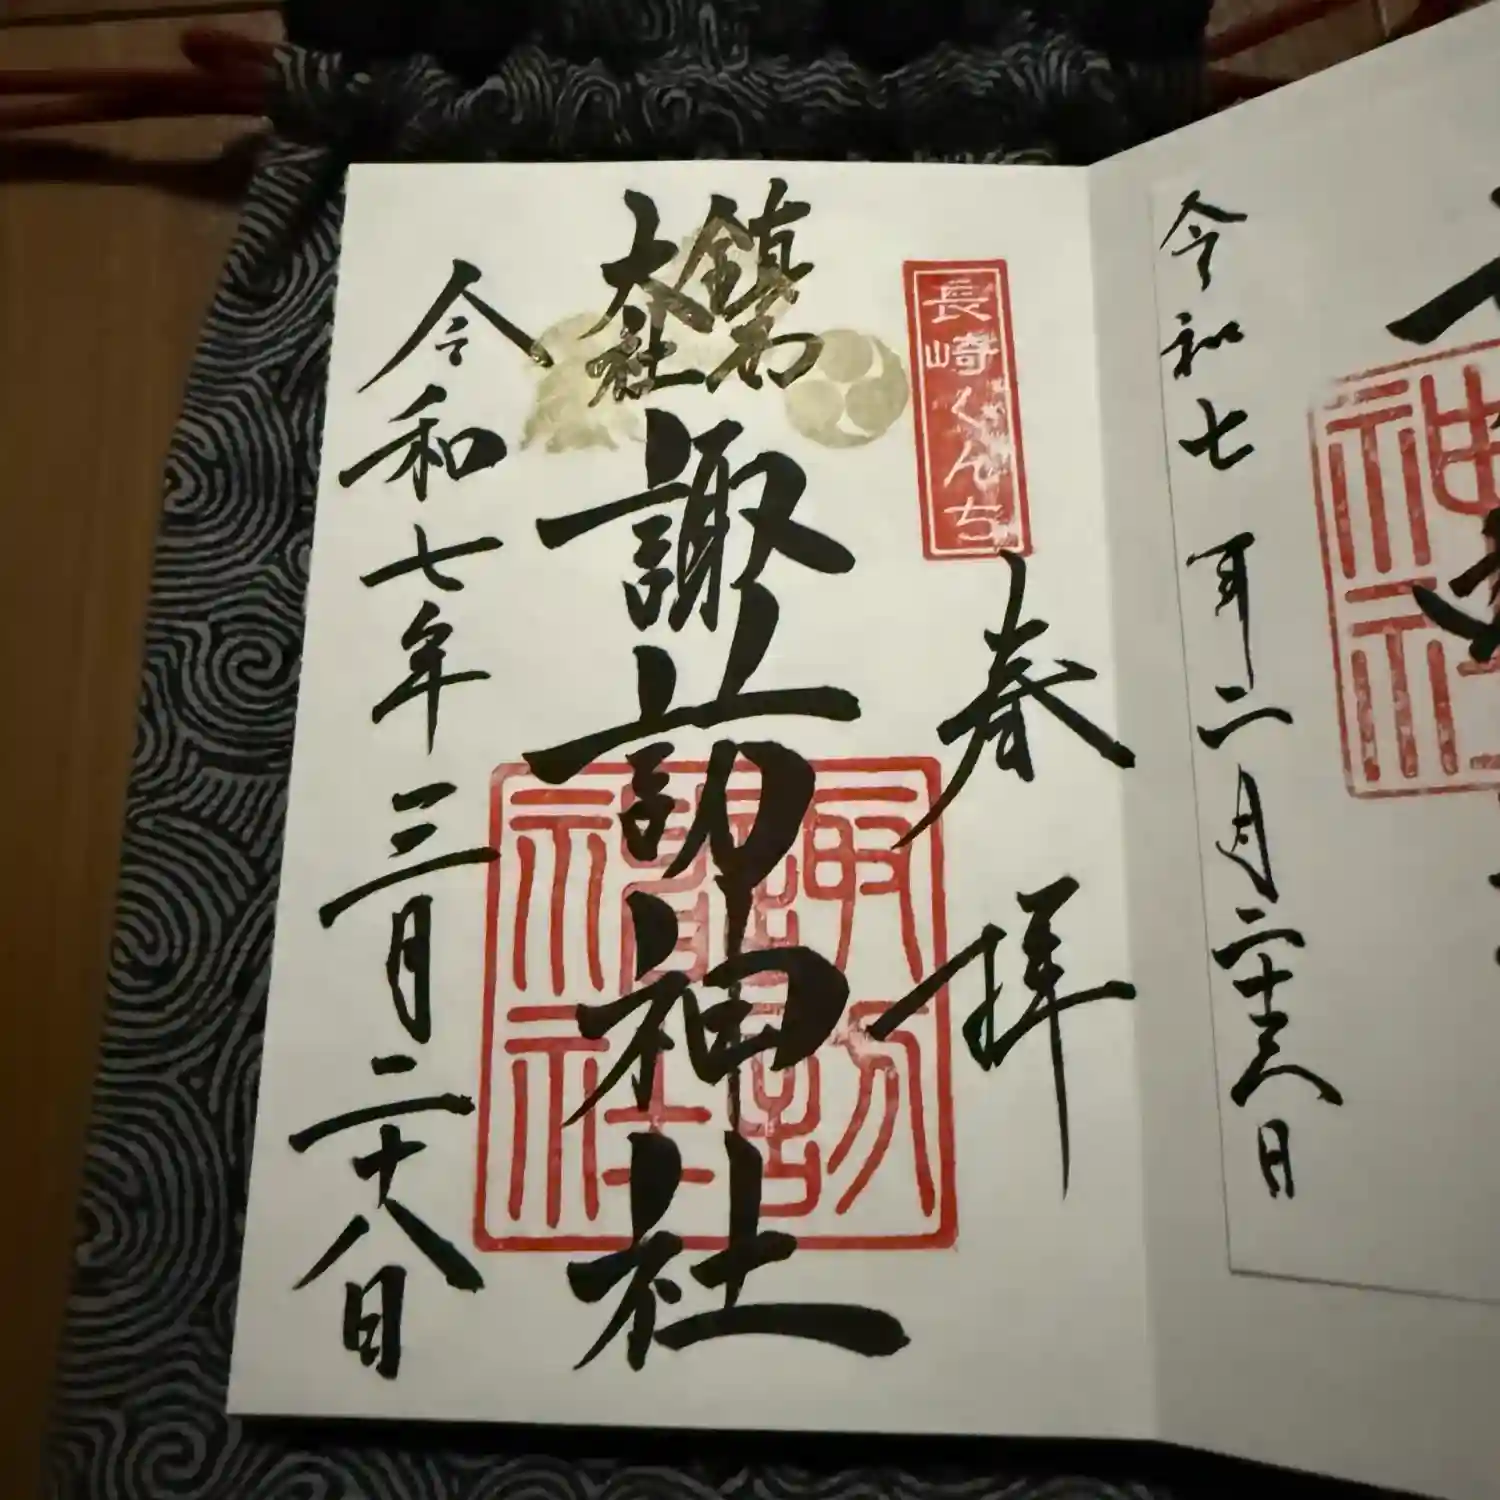 令和七年二月二十六日
長崎くんち
奉拝
鎮西
大社
諏訪神社
諏訪
神社
令和七年三月二十八日